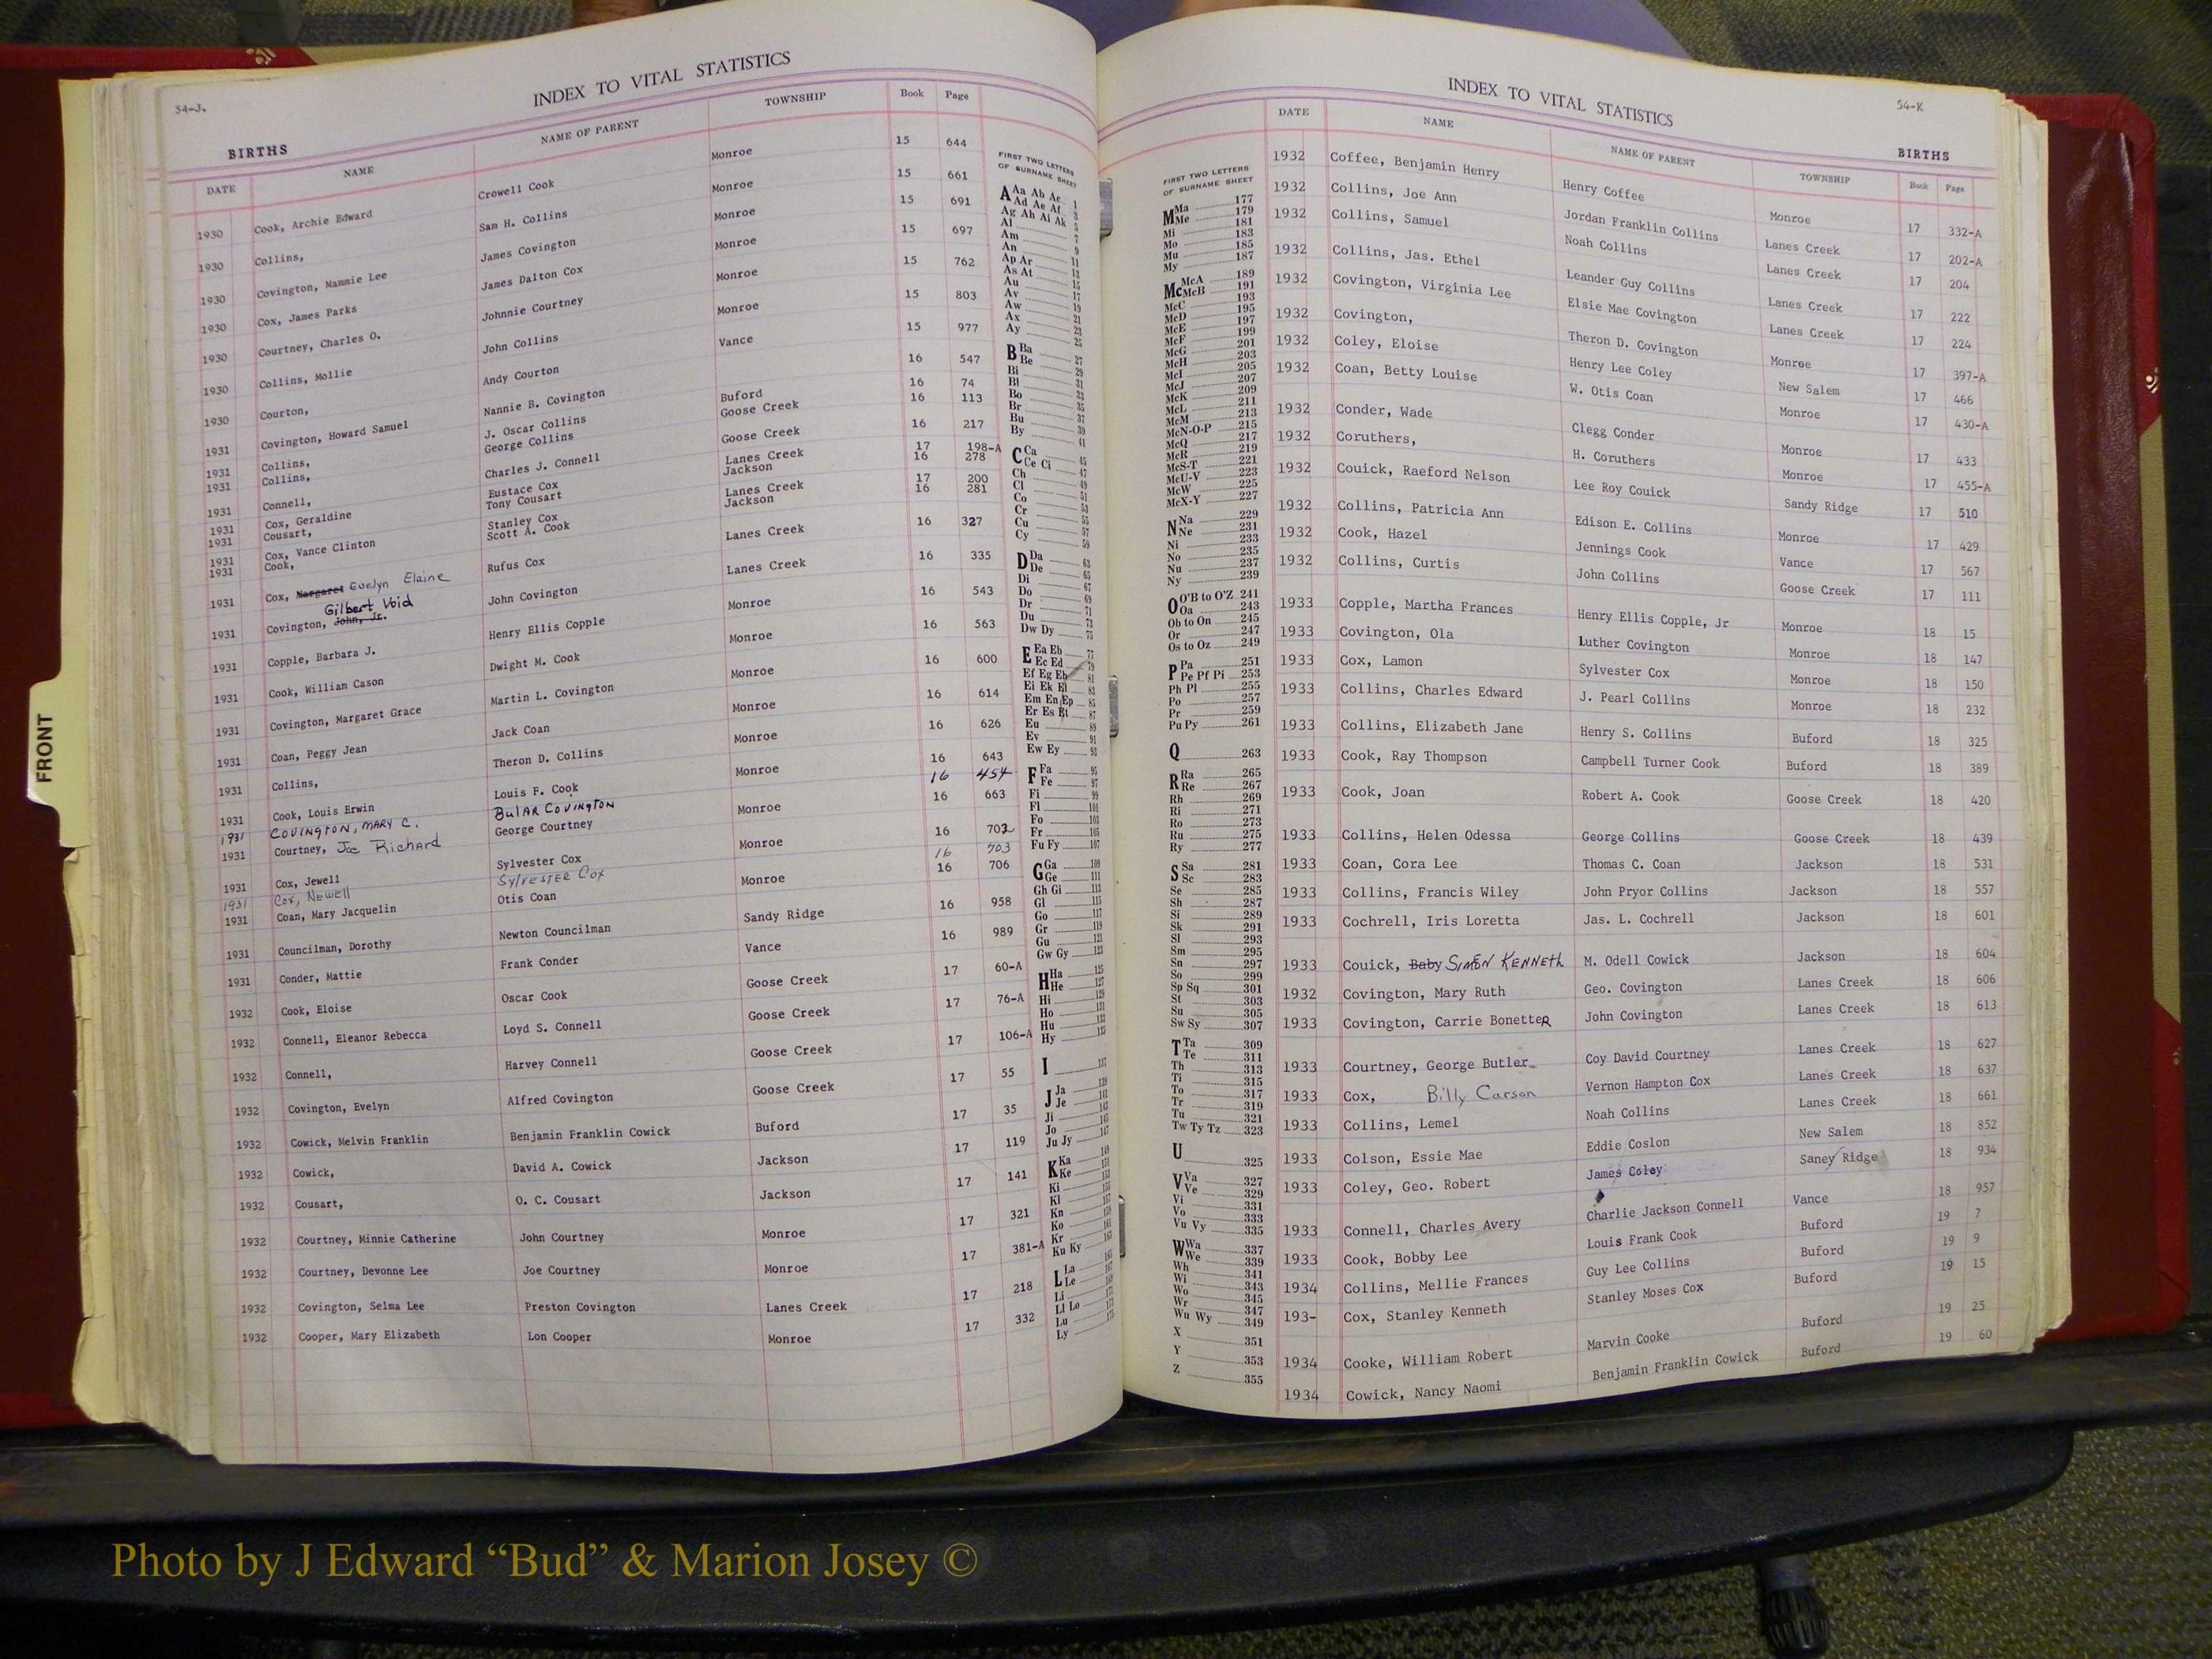 54-J.
INDEX TO VITAL STATISTICS
BIRTHS
DATE NAME NAME OF PARENT TOWNSHIP Book Page
1930 Cook, Archie Edward Crowell Cook Monroe 15 644
1930 Collins, Sam H. Collins Monroe 15 661
1930 Covington, Mammie Lee James Covington Monroe 15 691
1930 Cox, James Parks James Dalton Cox Monroe 15 697
1930 Courtney, Charles O. Johnnie Courtney Monroe 15 762
1930 Collins, Mollie John Collins Monroe 15 803
1930 Courton, Andy Courton Vance 15 977
1931 Covington, Howard Samuel Nannie B. Covington 16 547
1931 Collins, J. Oscar Collins Buford 16 74
1931 Collins, George Collins Goose Creek 16 113
1931 Connell, Charles J. Connell Goose Creek 16 217
1931 Cox, Geraldine Eustace Cox Lanes Creek 17 198-A
1931 Cousart, Tony Cousart Jackson 16 278
1931 Cox, Vance Clinton Stanley Cox Lanes Creek 17 200
1931 Cook, Scott A. Cook Jackson 16 281
1931 Cox, Margaret Evelyn Elaine Rufus Cox Lanes Creek 16 327
Gilbert Void
1931 Covington, John, Jr. John Covington Lanes Creek 16 335
1931 Copple, Barbara J. Henry Ellis Copple Monroe 16 543
1931 Cook, William Cason Dwight M. Cook Monroe 16 563
1931 Covington, Margaret Grace Martin L. Covington Monroe 16 600
1931 Coan, Peggy Jean Jack Coan Monroe 16 614
1931 Collins, Theron D. Collins Monroe 16 626
1931 Cook, Louis Erwin Louis F. Cook Monroe 16 643
1931 COVINGTON, MARY C. BulAR COVINGTON 16 454
1931 Courtney, Joe Richard George Courtney Monroe 16 663
1931 Cox, Jewell Sylvester Cox Monroe 16 702
1931 Cox, Newell SYlVESTER Cox 16 703
1931 Coan, Mary Jacquelin Otis Coan Monroe 16 706
1931 Councilman, Dorothy Newton Councilman Sandy Ridge 16 958
1931 Conder, Mattie Frank Conder Vance 16 989
1932 Cook, Eloise Oscar Cook Goose Creek 17 60-A
1932 Connell, Eleanor Rebecca Loyd S. Connell Goose Creek 17 76-A
1932 Connell, Harvey Connell Goose Creek 17 106-A
1932 Covington, Evelyn Alfred Covington Goose Creek 17 55
1932 Cowick, Melvin Franklin Benjamin Franklin Cowick Buford 17 35
1932 Cowick, David A. Cowick Jackson 17 119
1932 Cousart, O. C. Cousart Jackson 17 141
1932 Courtney, Minnie Catherine John Courtney Monroe 17 321
1932 Courtney, Devonne Lee Joe Courtney Monroe 17 381-A
1932 Covington, Selma Lee Preston Covington Lanes Creek 17 218
1932 Cooper, Mary Elizabeth Lon Cooper Monroe 17 332
FIRST TWO LETTERS
OF SURNAME SHEET
A Aa Ab Ac 1
Ad Ae Af 3
Ag Ah Ai Ak 5
Al 7
Am 9
An 11
Ap Ar 13
As At 15
Au 17
Av 19
Aw 21
Ax 23
Ay 25
B Ba 27
Be 29
Bi 31
Bl 33
Bo 35
Br 37
Bu 39
By 41
C Ca 45
Ce Ci 47
Ch 49
Cl 51
Co 53
Cr 55
Cu 57
Cy 59
D Da 63
De 65
Di 67
Do 69
Dr 71
Du 73
Dw Dy 75
E Ea Eb 77
Ec Ed 79
Ef Eg Eh 81
Ei Ek El 83
Em En Ep 85
Er Es Et 87
Eu 89
Ev 91
Ew Ey 93
F Fa 95
Fe 97
Fi 99
Fl 101
Fo 103
Fr 105
Fu Fy 107
G Ga 109
Ge 111
Gh Gi 113
Gl 115
Go 117
Gr 119
Gu 121
Gw Gy 123
H Ha 125
He 127
Hi 129
Ho 131
Hu 133
Hy 135
I 137
J Ja 139
Je 141
Ji 143
Jo 145
Ju Jy 147
K Ka 149
Ke
Ki
Kl
Kn
Ko
Kr
Ku Ky
L La
Le
Li
Ll Lo
Lu
Ly
INDEX TO VITAL STATISTICS
54-K
BIRTHS
DATE NAME NAME OF PARENT TOWNSHIP Book Page
FIRST TWO LETTERS
OF SURNAME SHEET
M Ma 177
Me 179
Mi 181
Mo 183
Mu 185
My 187
Mc McA 189
McB 191
McC 193
McD 195
McE 197
McF 199
McG 201
McH 203
McI 205
McJ 207
McK 209
McL 211
McM 213
McN-O-P 215
McQ 217
McR 219
McS-T 221
McU-V 223
McW 225
McX-Y 227
N Na 229
Ne 231
Ni 233
No 235
Nu 237
Ny 239
O O'B to O'Z 241
Oa 243
Ob to On 245
Or 247
Os to Oz 249
P Pa 251
Pe Pf Pi 253
Ph Pl 255
Po 257
Pr 259
Pu Py 261
Q 263
R Ra 265
Re 267
Rh 269
Ri 271
Ro 273
Ru 275
Ry 277
S Sa 281
Sc 283
Se 285
Sh 287
Si 289
Sk 291
Sl 293
Sm 295
Sn 297
So 299
Sp Sq 301
St 303
Su 305
Sw Sy 307
T Ta 309
Te 311
Th 313
Ti 315
To 317
Tr 319
Tu 321
Tw Ty Tz 323
U 325
V Va 327
Ve 329
Vi 331
Vo 333
Vu Vy 335
W Wa 337
We 339
Wh 341
Wi 343
Wo 345
Wr 347
Wu Wy 349
X 351
Y 353
Z 355
1932 Coffee, Benjamin Henry Henry Coffee Monroe 17 332-A
1932 Collins, Joe Ann Jordan Franklin Collins Lanes Creek 17 202-A
1932 Collins, Samuel Noah Collins Lanes Creek 17 204
1932 Collins, Jas. Ethel Leander Guy Collins Lanes Creek 17 222
1932 Covington, Virginia Lee Elsie Mae Covington Lanes Creek 17 224
1932 Covington, Theron D. Covington Monroe 17 397-A
1932 Coley, Eloise Henry Lee Coley New Salem 17 466
1932 Coan, Betty Louise W. Otis Coan Monroe 17 430-A
1932 Conder, Wade Clegg Conder Monroe 17 433
1932 Coruthers, H. Coruthers Monroe 17 455-A
1932 Couick, Raeford Nelson Lee Roy Couick Sandy Ridge 17 510
1932 Collins, Patricia Ann Edison E. Collins Monroe 17 429
1932 Cook, Hazel Jennings Cook Vance 17 567
1932 Collins, Curtis John Collins Goose Creek 17 111
1933 Copple, Martha Frances Henry Ellis Copple, Jr Monroe 18 15
1933 Covington, Ola Luther Covington Monroe 18 147
1933 Cox, Lamon Sylvester Cox Monroe 18 150
1933 Collins, Charles Edward J. Pearl Collins Monroe 18 232
1933 Collins, Elizabeth Jane Henry S. Collins Buford 18 325
1933 Cook, Ray Thompson Campbell Turner Cook Buford 18 389
1933 Cook, Joan Robert A. Cook Goose Creek 18 420
1933 Collins, Helen Odessa George Collins Goose Creek 18 439
1933 Coan, Cora Lee Thomas C. Coan Jackson 18 531
1933 Collins, Francis Wiley John Pryor Collins Jackson 18 557
1933 Cochrell, Iris Loretta Jas. L. Cochrell Jackson 18 601
1933 Couick, Baby SIMON KENNETH M. Odell Cowick Jackson 18 604
1932 Covington, Mary Ruth Geo. Covington Lanes Creek 18 606
1933 Covington, Carrie BonetteR John Covington Lanes Creek 18 613
1933 Courtney, George Butler Coy David Courtney Lanes Creek 18 627
1933 Cox, Billy Carson Vernon Hampton Cox Lanes Creek 18 637
1933 Collins, Lemel Noah Collins Lanes Creek 18 661
1933 Colson, Essie Mae Eddie Coslon New Salem 18 852
1933 Coley, Geo. Robert James Coley Saney Ridge 18 934
1933 Connell, Charles Avery Charlie Jackson Connell Vance 18 957
1933 Cook, Bobby Lee Louis Frank Cook Buford 19 7
1934 Collins, Mellie Frances Guy Lee Collins Buford 19 9
193- Cox, Stanley Kenneth Stanley Moses Cox Buford 19 15
1934 Cooke, William Robert Marvin Cooke Buford 19 25
1934 Cowick, Nancy Naomi Benjamin Franklin Cowick Buford 19 60
FRONT
Photo by J Edward “Bud” & Marion Josey ©